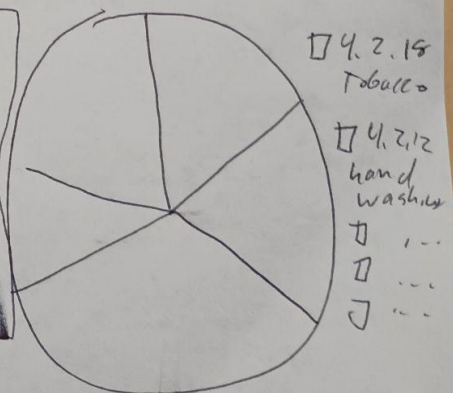 4.2.18
Tobacco
4.2.12
hand
washing
...
...
...